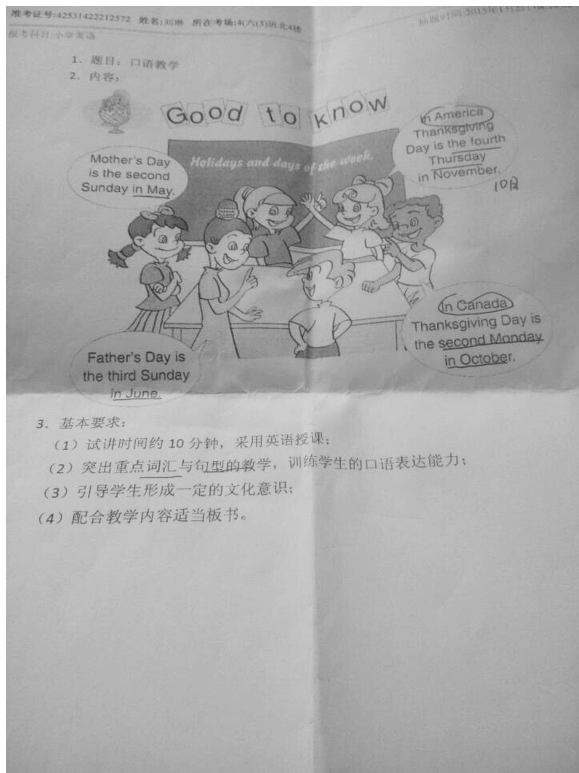 准考证号:42531422212572 姓名:刘琳 所在考场:4(六(3)班北4楼
报考科目:小学英语
1. 题目:口语教学
2. 内容:
Good to know
Holidays and days of the week.
Mother's Day
is the second
Sunday in May.
In America
Thanksgiving
Day is the fourth
Thursday
in November.
10月
In Canada
Thanksgiving Day is
the second Monday
in October.
Father's Day is
the third Sunday
in June.
3. 基本要求:
(1)试讲时间约10分钟,采用英语授课;
(2)突出重点词汇与句型的教学,训练学生的口语表达能力;
(3)引导学生形成一定的文化意识;
(4)配合教学内容适当板书。